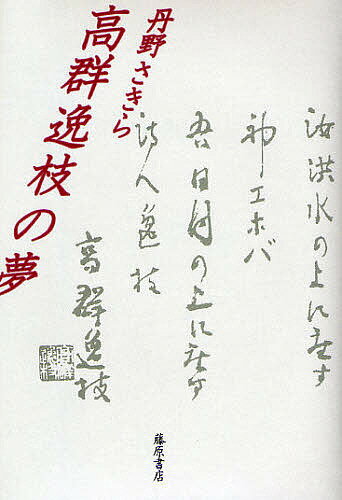 汝洪水の上に座す
神エホバ
吾日月の上に座す
詩人逸枝
高群逸枝
丹野さきら
高群逸枝の夢
藤原書店